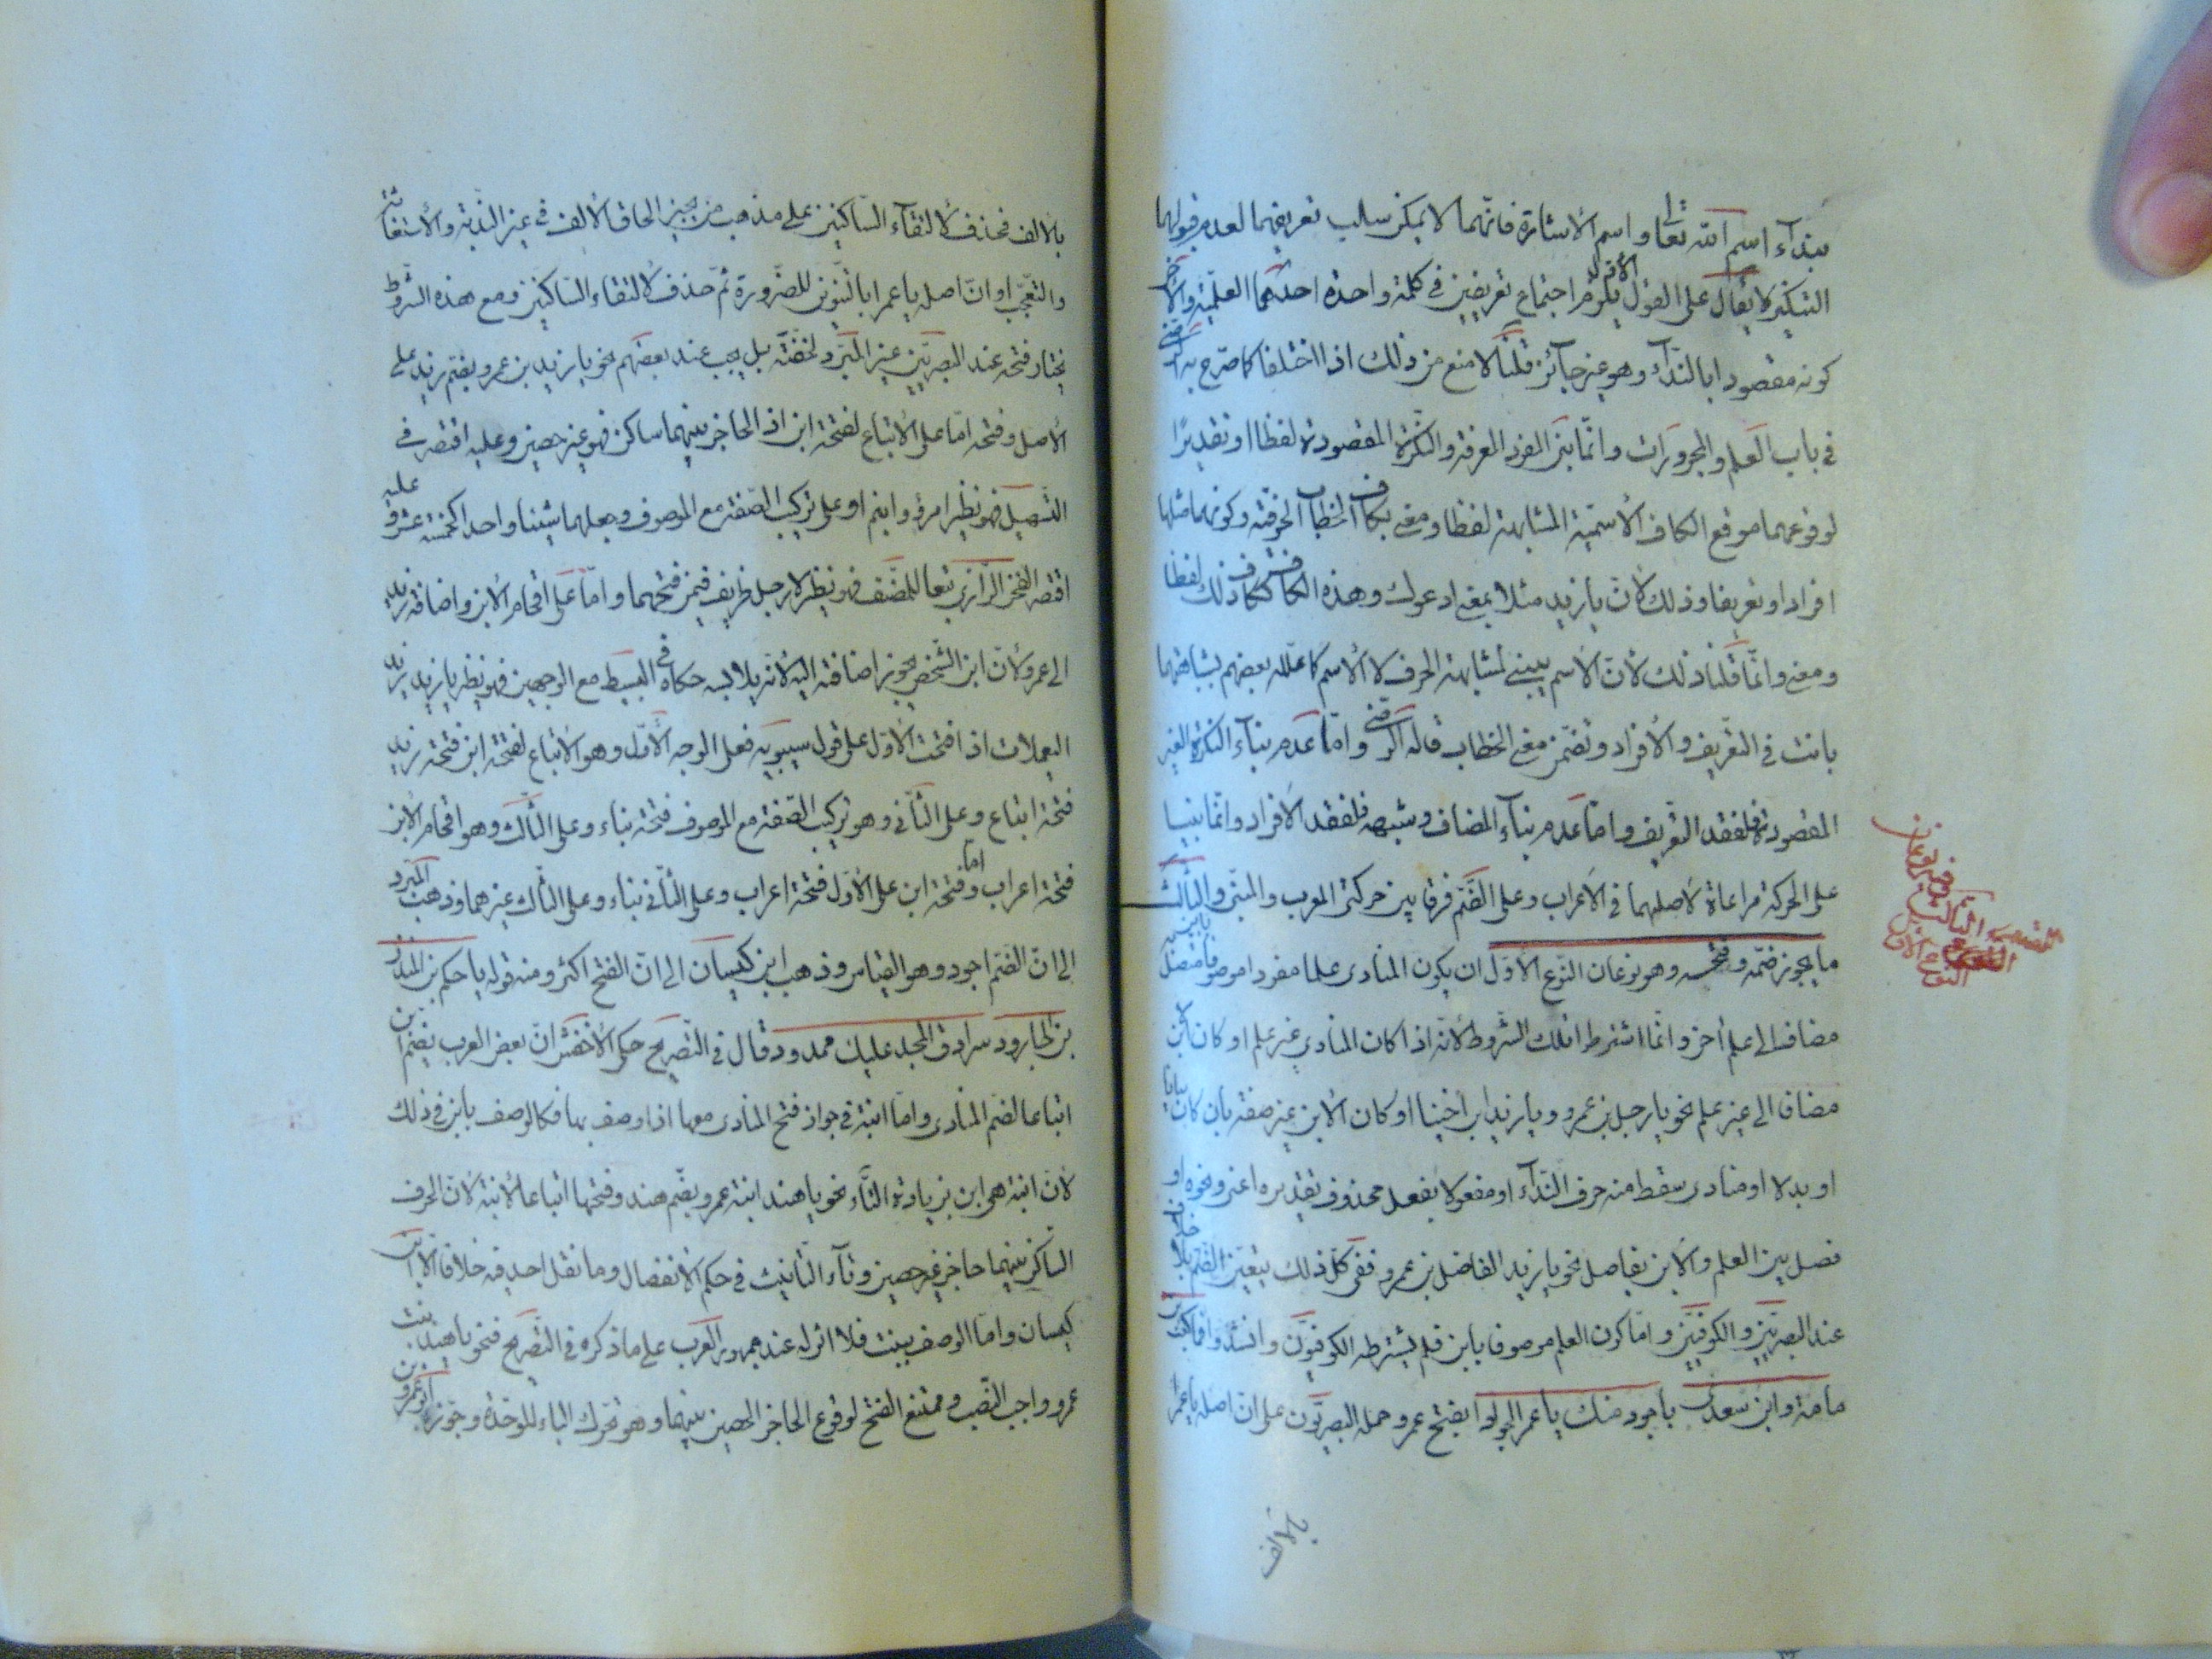 بنداء اسم الله تعالى واسم الأشارة فانهما لا يمكن سلب تعريفهما لعدم قبولهما
التنكير لا يقال على القول الأول يلزم اجتماع تعريفين في كلمة واحدة احدهما العلمية والآخر
كونه مقصودا بالنداء وهو غير جائز قلنا لا منع من ذلك اذا اختلفا كما صرح به الرضي
في باب العلم والمجرورات وانما بني المفرد المعرفة والنكرة المقصودة لفظا او تقديرا
لوقوعهما موقع الكاف الأسمية المشابهة لفظا ومعنى بكاف الخطاب الحرفية وكونهما مثلها
افرادا وتعريفا وذلك لأن يا زيد مثلا بمعنى ادعوك وهذه الكاف ككاف ذلك لفظا
ومعنى وانما قلنا ذلك لأن الأسم يبنى لمشابهة الحرف لا الأسم كما علله بعضهم بشباهتهما
بانت في التعريف والأفراد وتضمن معنى الخطاب قاله الرضي واما عدم بناء النكرة الغير
المقصودة فلفقد التعريف واما عدم بناء المضاف وشبهه فلفقد الأفراد وانما بنيا
على الحركة مراعاة لأصلهما في الأعراب وعلى الضم فرقا بين حركتى المعرب والمبني والثالث
ما يجوز ضمه وفتحه وهو نوعان النوع الأول ان يكون المنادى علما مفردا موصوفا بابن متصل به
مضاف الى علم آخر وانما اشترطوا تلك الشروط لأنه اذا كان المنادى غير علم او كان الأبن
مضاف الى غير علم نحو يا رجل بن عمرو ويا زيد ابن اخينا او كان الأبن غير صفة بان كان بيانا
او بدلا او منادى سقط منه حرف النداء او مفعولا بفعل محذوف تقديره اعني ونحوه او
فصل بين العلم والأبن بفاصل نحو يا زيد الفاضل بن عمرو ففي كل ذلك يتعين الضم بلا خلاف
عند البصريين والكوفيين واما كون العلم موصوفا بابن فلم يشترطه الكوفيون وانشدوا فما كعب بن
مامة وابن سعدى باجود منك يا عمر الجوادا بفتح عمر وحمله البصريون على ان اصله يا عمرا
القسم الثالث
النوع الأول
بالألف فحذف لألتقاء الساكنين على مذهب من يجيز الحاق الألف في غير الندبة والأستغاثة
والتعجب او ان اصله يا عمرا بالتنوين للضرورة ثم حذف لألتقاء الساكنين ومع هذه الشروط
يختار فتحه عند البصريين غير المبرد لخفته بل يجب عند بعضهم نحو يا زيد بن عمرو بضم زيد على
الأصل وفتحه اما على الأتباع لفتحة ابن اذ الحاجز بينهما ساكن فهو غير حصين وعليه اقتصر في
التسهيل فهو نظير امرؤ وابنم او على تركيب الصفة مع الموصوف وجعلهما شيئا واحدا كخمسة عشر وعليه
اقتصر الفخر الرازي تبعا للمصنف فهو نظير لا رجل ظريف فيمن فتحهما واما على اقحام الأبن واضافة زيد
الى عمرو لأن ابن الشخص يجوز اضافته اليه لأنه يلابسه حكاه في البسيط مع الوجهين فهو نظير يا زيد زيد
اليعملات اذا فتحت الأول على قول سيبويه فعلى الوجه الأول وهو الأتباع لفتحة ابن فتحة زيد
فتحة اتباع وعلى الثاني وهو تركيب الصفة مع الموصوف فتحة بناء وعلى الثالث وهو اقحام الأبن
فتحة اعراب واما فتحة ابن على الأول فتحة اعراب وعلى الثاني بناء وعلى الثالث غيرهما وذهب المبرد
الى ان الضم اجود وهو القياس وذهب ابن كيسان الى ان الفتح اكثر ومنه قوله يا حكم بن المنذر
بن الجارود سرادق المجد عليك ممدود قال في التصريح حكى الأخفش ان بعض العرب يضم ابن
اتباعا لضم المنادى واما ابنة في جواز فتح المنادى معها اذا وصف بها فكالوصف بابن في ذلك
لأن ابنة هي ابن بزيادة التاء نحو يا هند ابنة عمرو بضم هند وفتحها اتباعا لأبنة لأن الحرف
الساكن بينهما حاجز غير حصين وتاء التأنيث في حكم الأنفصال وما نقل احد فيه خلافا الا ابن
كيسان واما الوصف ببنت فلا اثر له عند جمهور العرب على ما ذكره في التصريح فنحو يا هند بنت
عمرو واجب الضم وممتنع الفتح لوقوع الحاجز الحصين بينهما وهو تحرك الباء للوحدة وجوز ابو عمرو بن